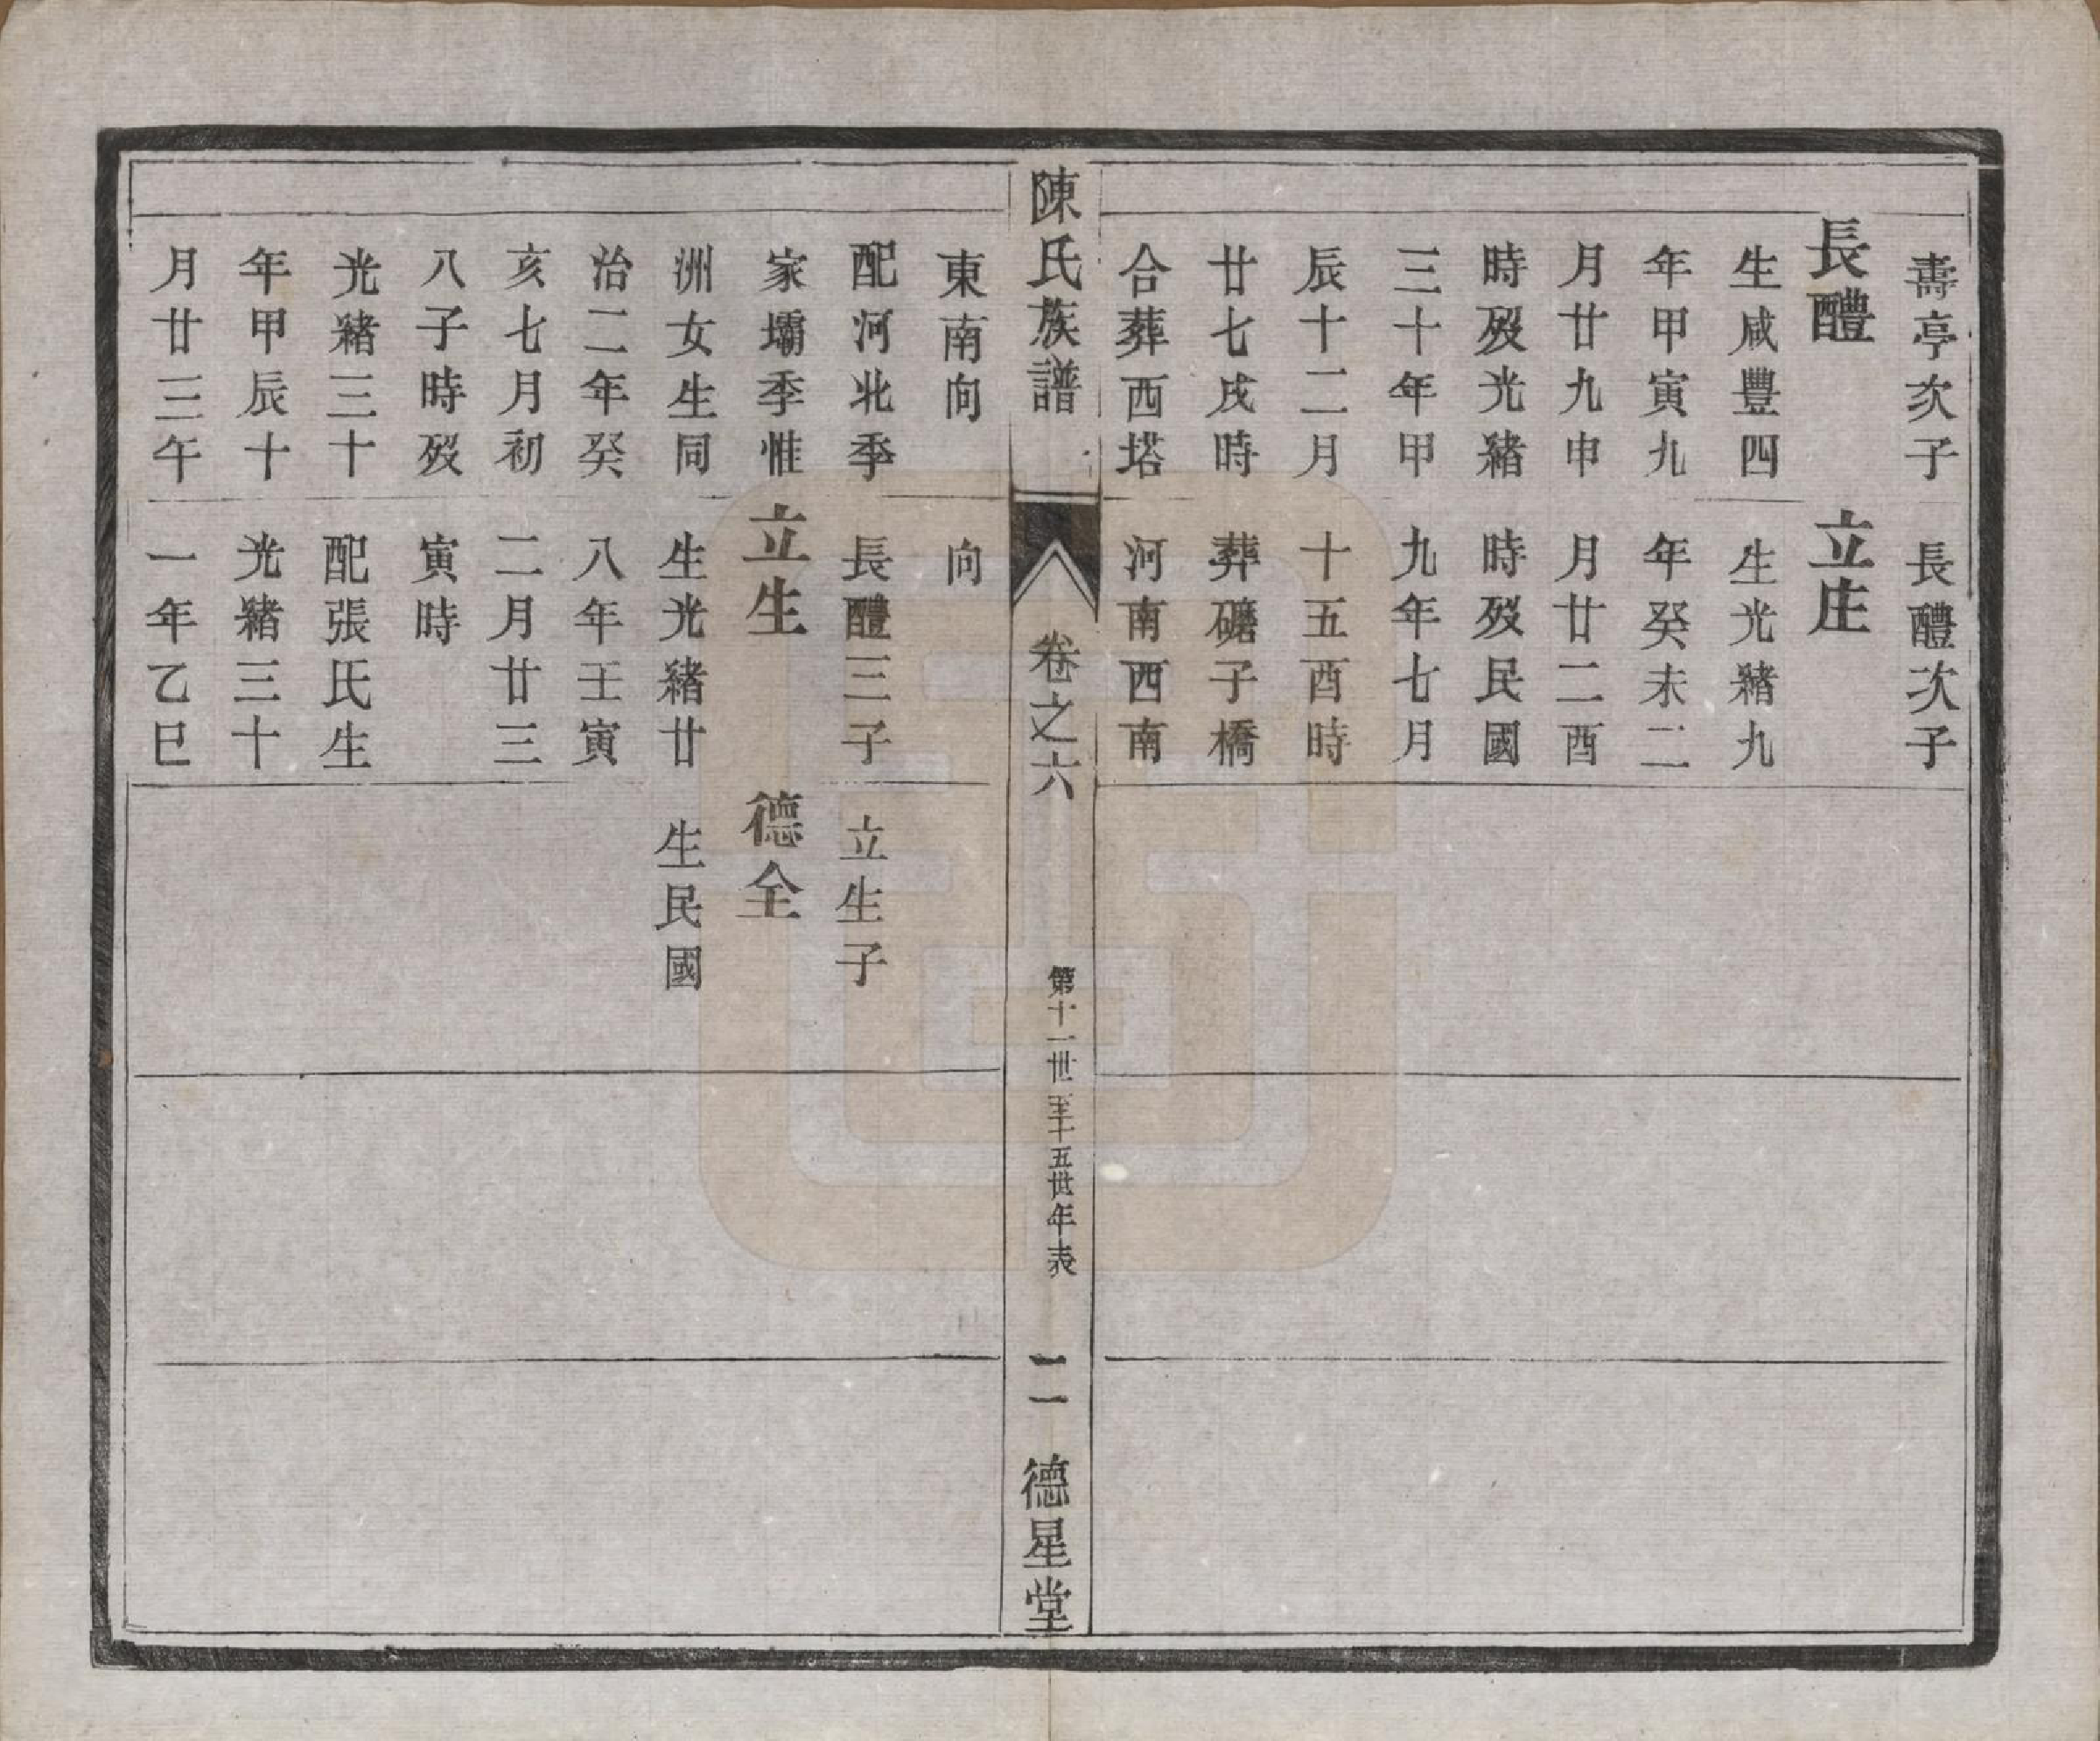 壽亭次子
長醴
生咸豐四
年甲寅九
月廿九申
時歿光緒
三十年甲
辰十二月
廿七戌時
合葬西塔
長醴次子
立庄
生光緒九
年癸未二
月廿二酉
時歿民國
九年七月
十五酉時
葬礳子橋
河南西南
陳氏族譜
卷之六
第十一世至十五世年表
二一
德星堂
東南向
配河北季
家壩季惟
洲女生同
治二年癸
亥七月初
八子時歿
光緒三十
年甲辰十
月廿三午
向
長醴三子
立生
生光緒廿
八年壬寅
二月廿三
寅時
配張氏生
光緒三十
一年乙巳
立生子
德全
生民國